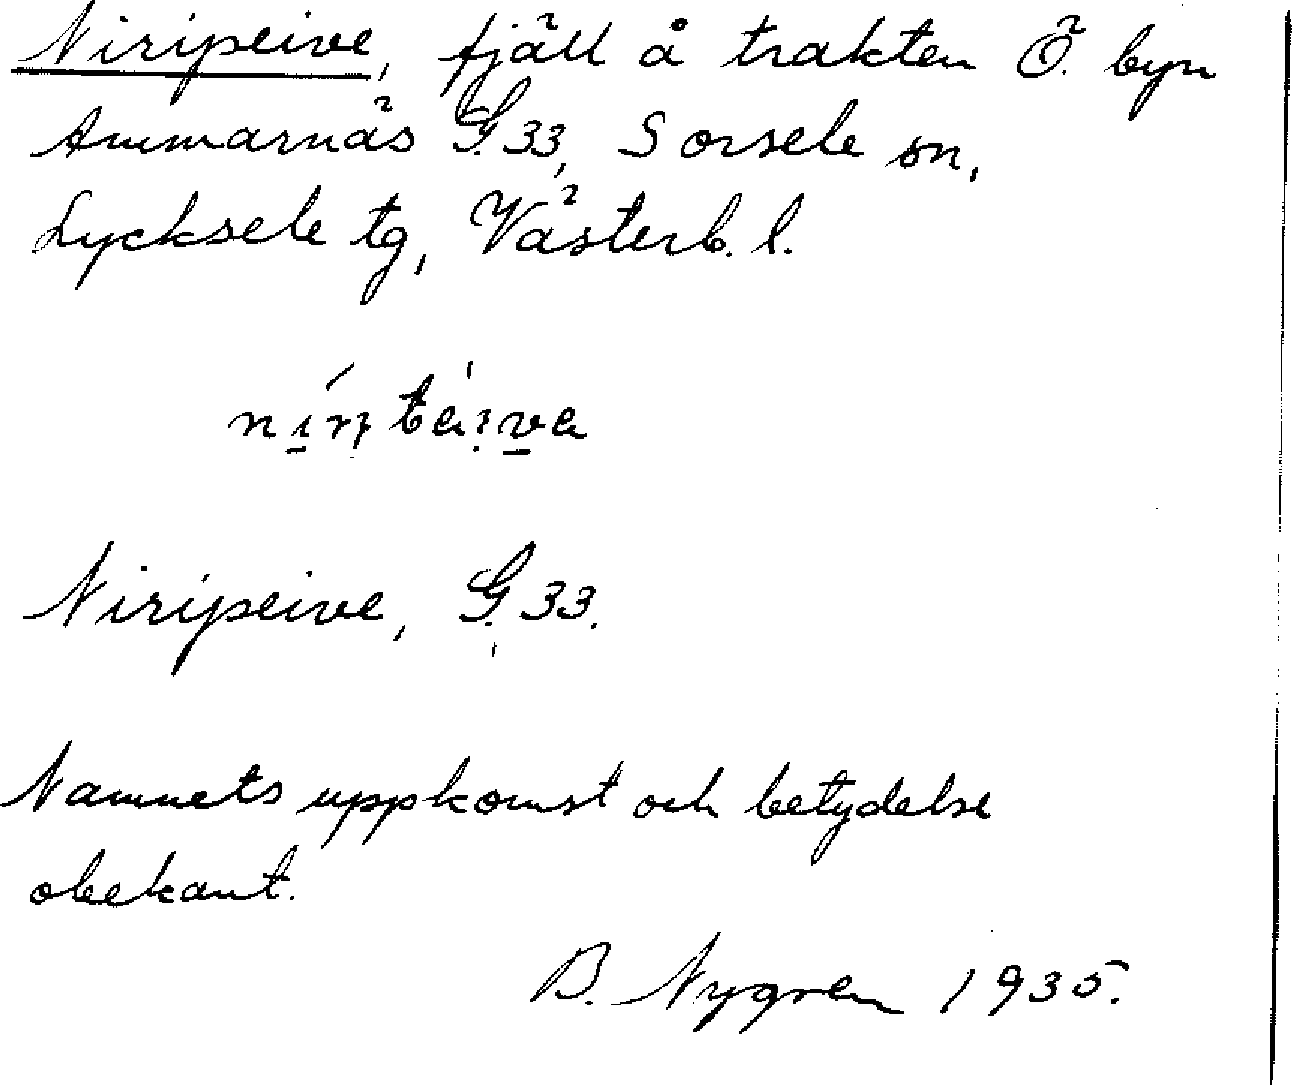 Niripeive, fjäll å trakten Ö. byn
Ammarnäs G. 33, Sorsele sn,
Lycksele tg, Västerb. l.
Niripeive, G. 33.
Namnets uppkomst och betydelse
obekant.
B. Nygren 1935.